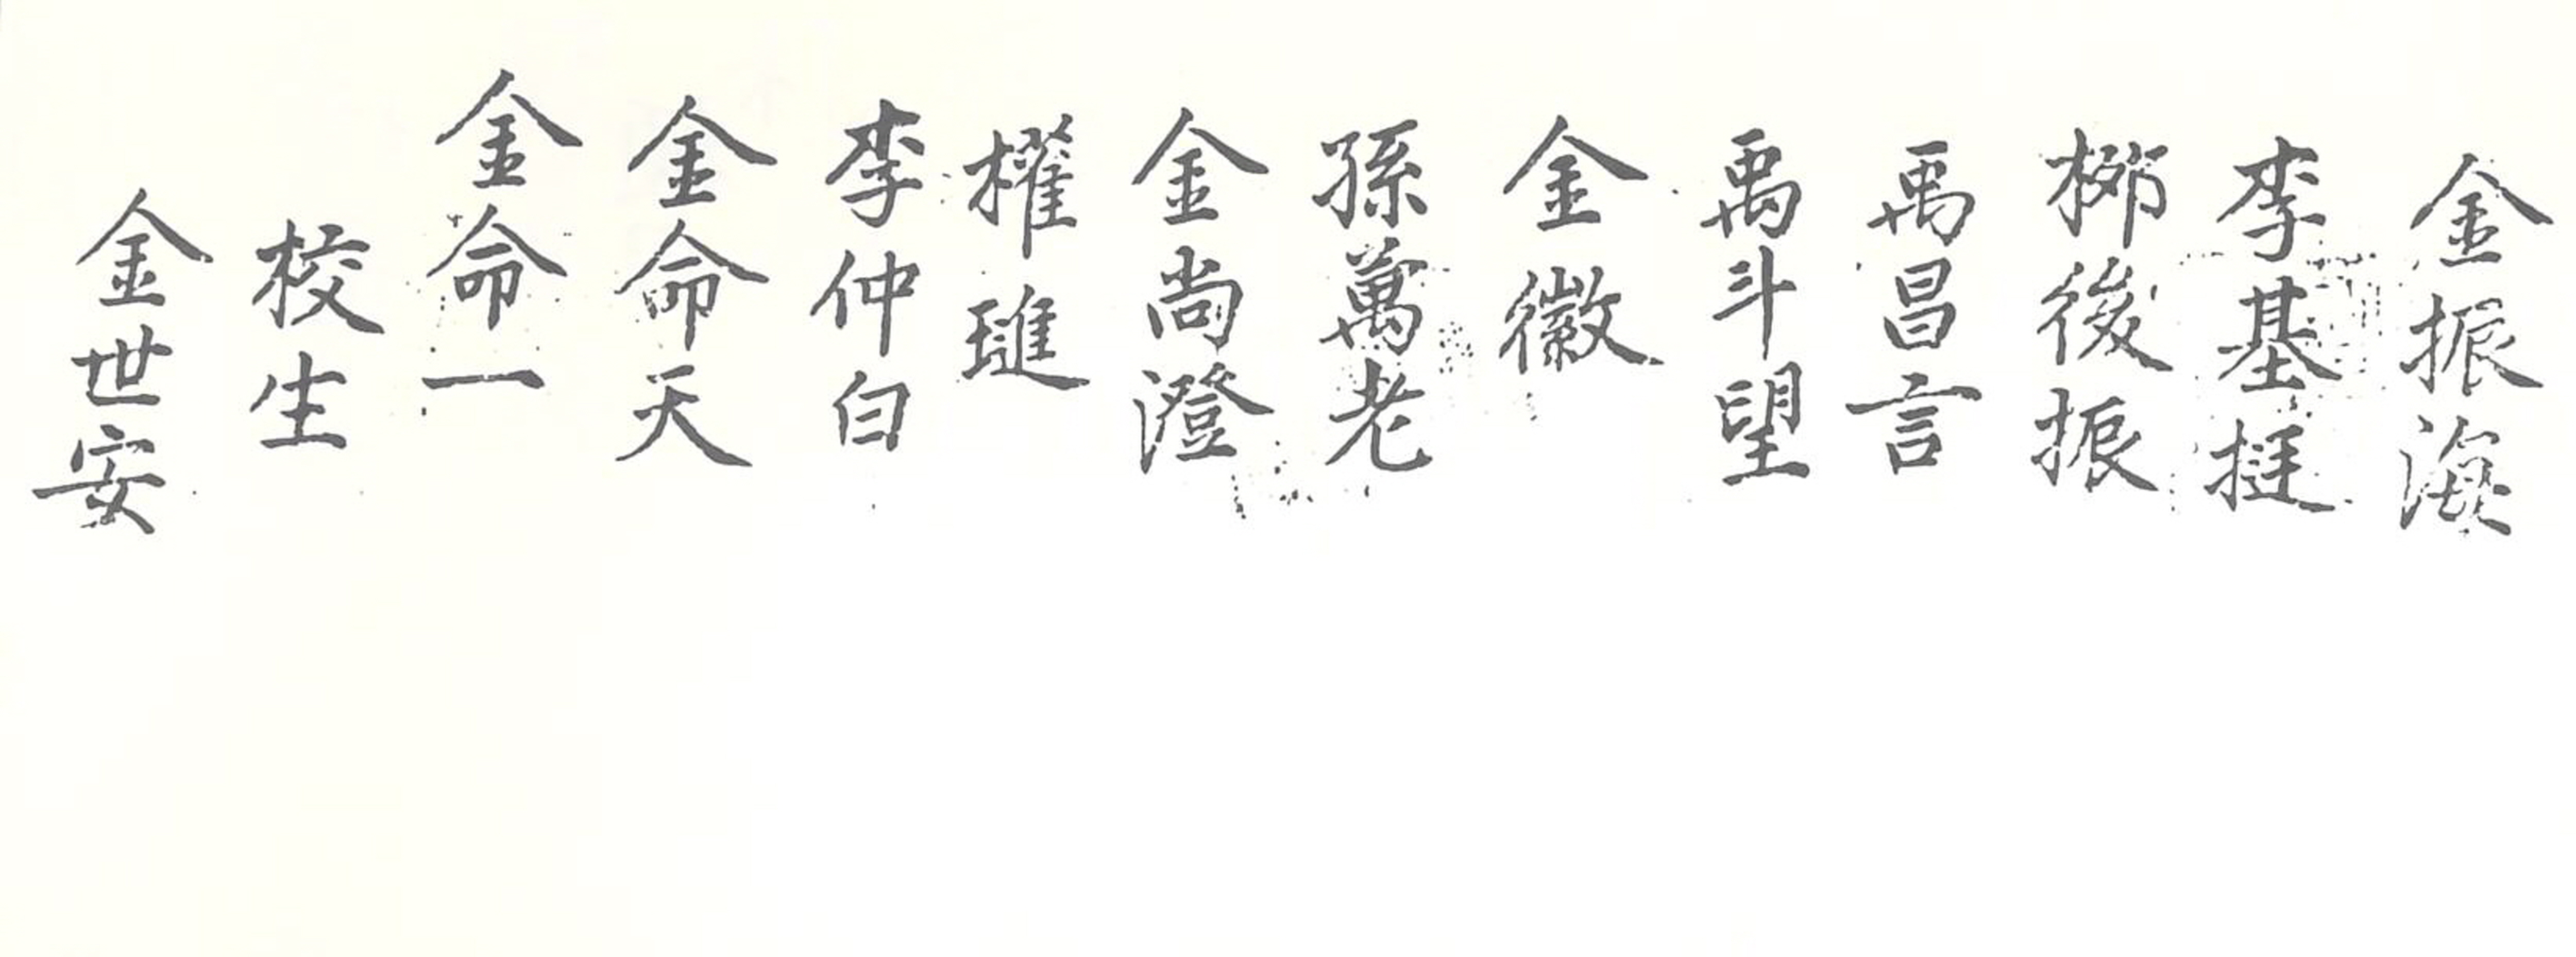 金振海
李基挺
柳後振
禹昌言
禹斗望
金徽
孫萬老
金尚澄
權璡
李仲白
金命天
金命一
校生
金世安